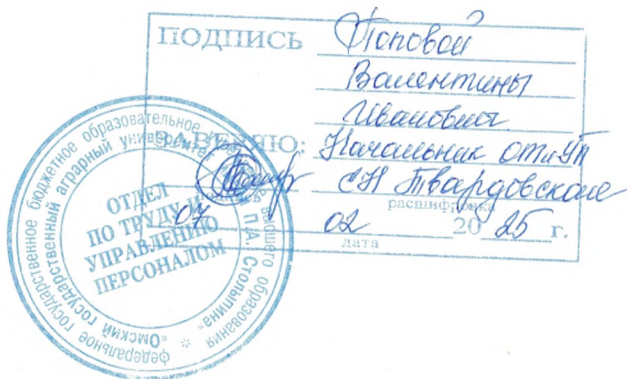 ПОДПИСЬ Поповой
Валентины
Ивановны
ЗАВЕРЯЮ: Начальник ОТиУП
СН Твардовская
расшифровка
07 02 2025 г.
дата
федеральное государственное бюджетное образовательное высшего образования
«Омский государственный аграрный университет П.А. Столыпина»
ОТДЕЛ
ПО ТРУДУ И
УПРАВЛЕНИЮ
ПЕРСОНАЛОМ